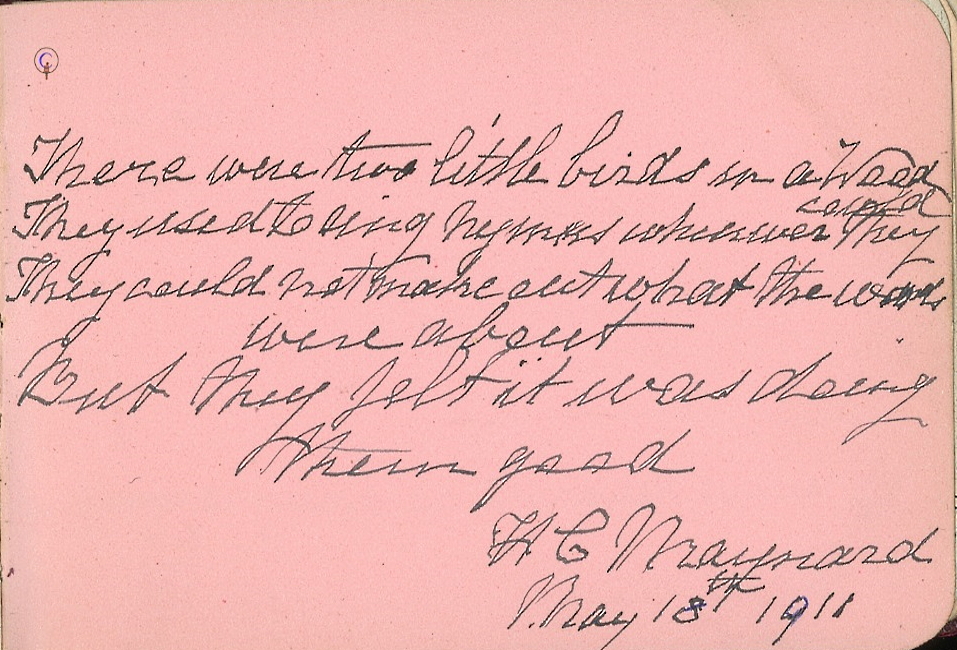 There were two little birds in a Wood
They used to sing hymns whenever they could
They could not make out what the words
were about
But they felt it was doing
them good
H C Maynard
May 18th 1911